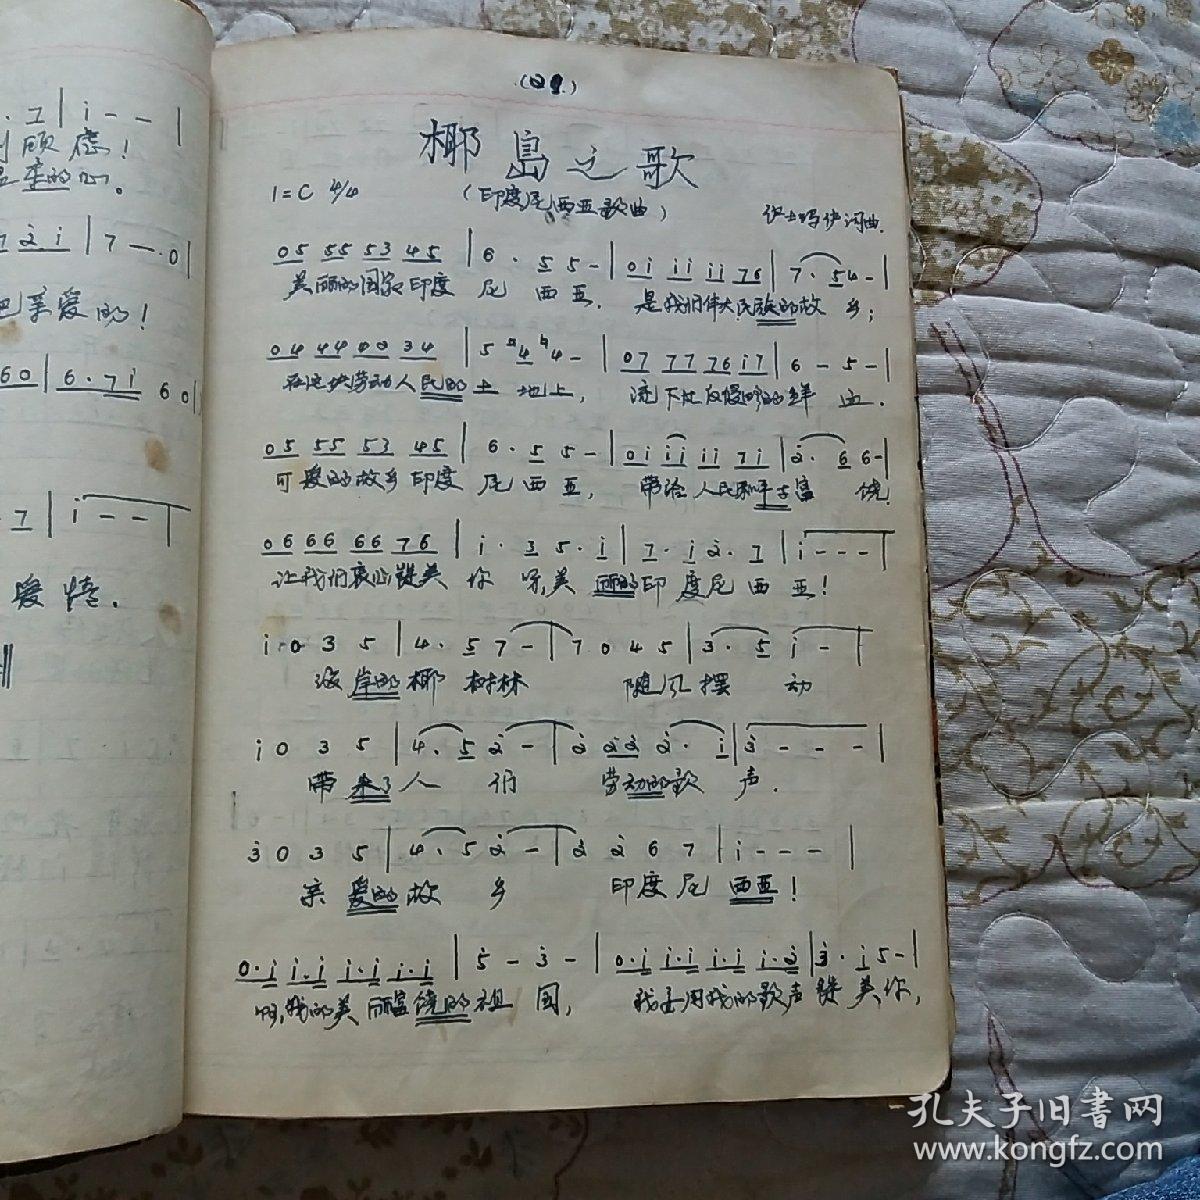 7 | i - - |
顾虑！
的心。
7 2 i | 7 - - 0 |
把亲爱的！
6 0 | 6 · 7 i 6 0
7 | i - - |
爱情．
椰岛之歌
1=C 4/4
（印度尼西亚歌曲）
词曲．
0 5 5 5 5 3 4 5 | 6 · 5 5 - | 0 i i i i i 7 6 | 7 · 5 4 - |
美丽的国家印度尼西亚． 是我们伟大民族的故乡；
0 4 4 4 4 0 3 4 | 5 4 4 - | 0 7 7 7 7 6 i 7 | 6 - 5 - |
在这块劳动人民的土地上， 流下过反侵略的鲜血．
0 5 5 5 5 3 4 5 | 6 · 5 5 - | 0 i i i i i 7 i | 2 · 6 6 - |
可爱的故乡印度尼西亚， 带给人民和平与富饶．
0 6 6 6 6 6 7 6 | i · 3 5 · i | 7 · i 2 · 7 | i - - - |
让我们衷心赞美你 美丽的印度尼西亚！
i 0 3 5 | 4 · 5 7 - | 7 0 4 5 | 3 · 5 i - |
海岸的椰树林 随风摆动
i 0 3 5 | 4 · 5 2 - | 2 2 2 2 2 · i | 3 - - - |
带来了人们 劳动的歌声．
3 0 3 5 | 4 · 5 2 - | 2 2 6 7 | i - - - |
亲爱的故乡 印度尼西亚！
0 · i i · i i · i i · i | 5 - 3 - | 0 · i i · i i · i i · 2 | 3 · i 5 - |
啊，我的美丽富饶的祖国， 我要用我的歌声赞美你，
孔夫子旧書网
www.kongfz.com